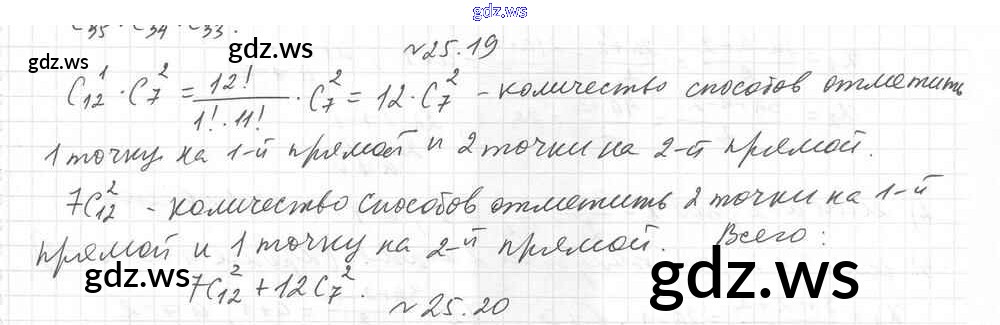 gdz.ws
C₃₅ · C₃₄ · C₃₃.
gdz.ws
№25.19
gdz.ws
C¹₁₂ · C²₇ = 12!/1!·11! · C²₇ = 12 · C²₇ - количество способов отметить
1 точку на 1-й прямой и 2 точки на 2-й прямой.
7C²₁₂ - количество способов отметить 2 точки на 1-й
прямой и 1 точку на 2-й прямой. Всего:
gdz.ws
7C²₁₂ + 12C²₇.
gdz.ws
№25.20